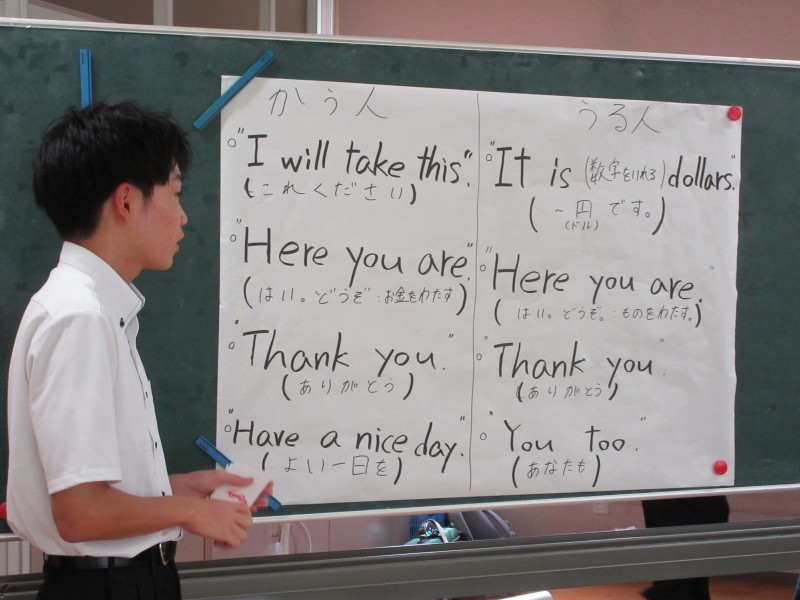 かう人
"I will take this".
(これください)
"Here you are."
(はい。どうぞ:お金をわたす)
"Thank you."
(ありがとう)
"Have a nice day."
(よい一日を)
うる人
"It is (数字をいれる) dollars."
(~円です。)
(ドル)
"Here you are."
(はい。どうぞ。:ものをわたす。)
"Thank you."
(ありがとう)
"You too."
(あなたも)